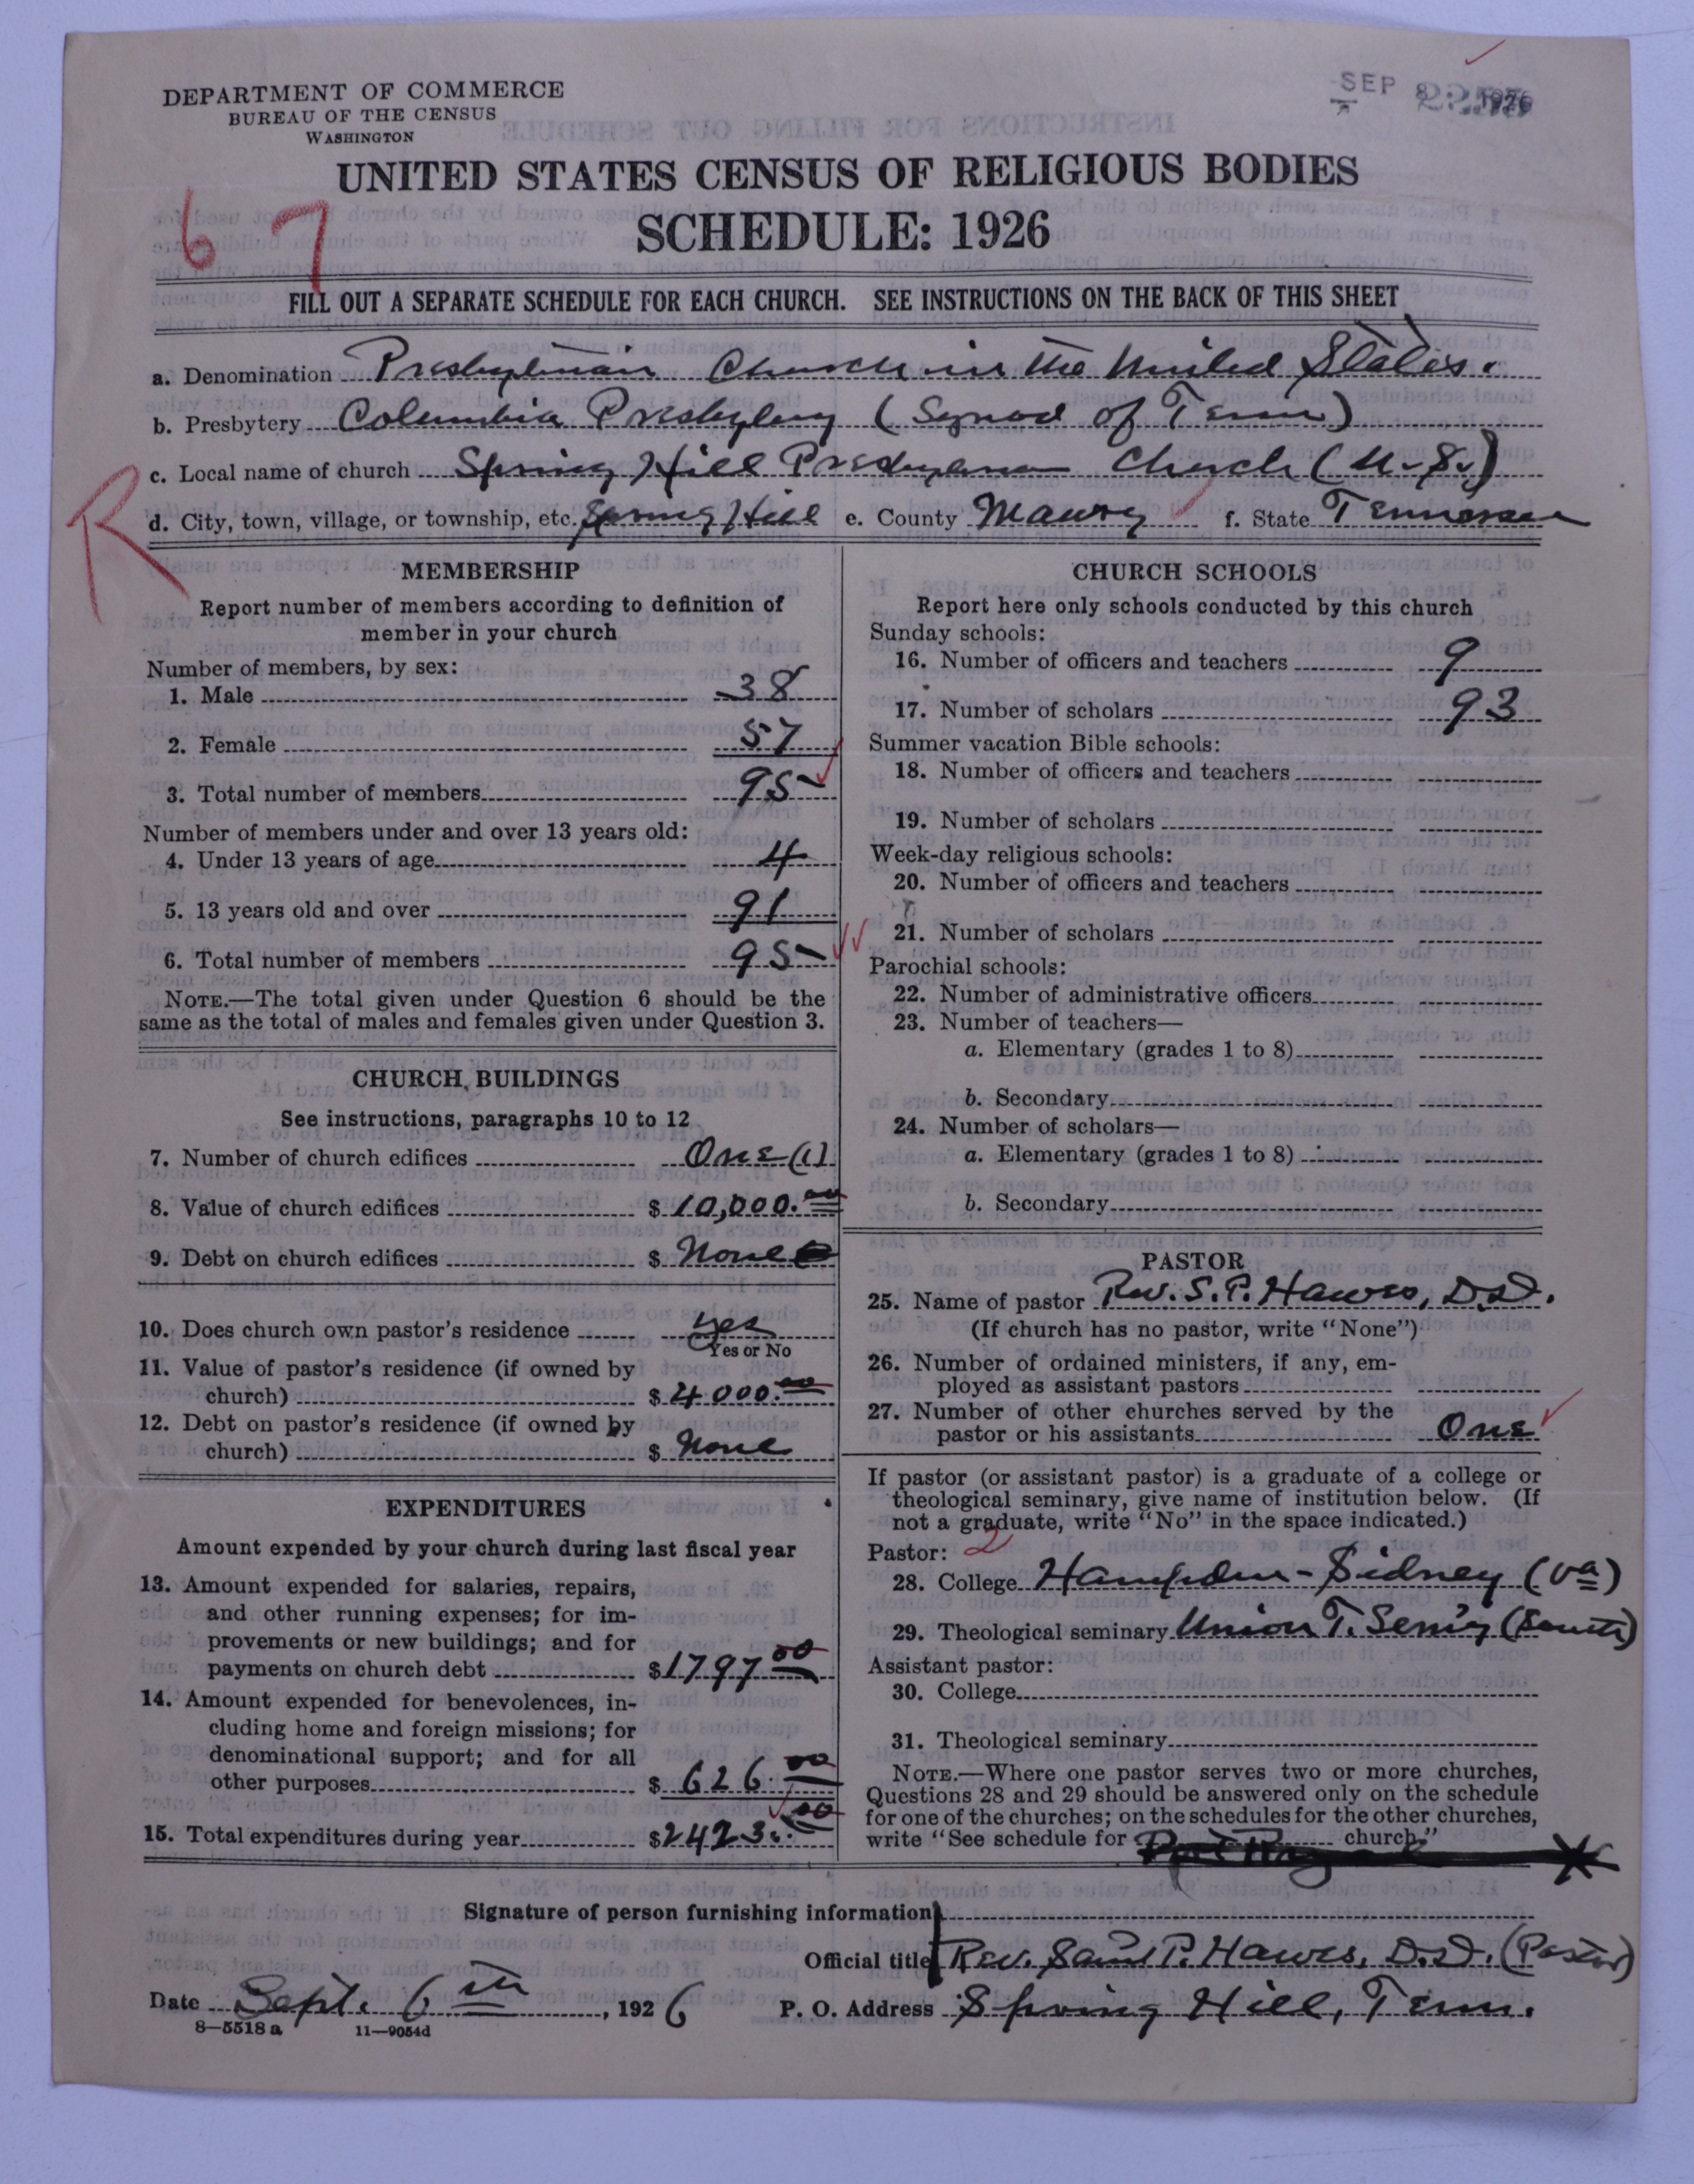 DEPARTMENT OF COMMERCE
BUREAU OF THE CENSUS
WASHINGTON
SEP 8 1926
UNITED STATES CENSUS OF RELIGIOUS BODIES
SCHEDULE: 1926
67
FILL OUT A SEPARATE SCHEDULE FOR EACH CHURCH. SEE INSTRUCTIONS ON THE BACK OF THIS SHEET
a. Denomination Presbyterian Church in the United States.
b. Presbytery Columbia Presbytery (Synod of Tenn)
c. Local name of church Spring Hill Presbyterian Church (U.S.)
R
d. City, town, village, or township, etc. Spring Hill e. County Maury f. State Tennessee
MEMBERSHIP
Report number of members according to definition of
member in your church
Number of members, by sex:
1. Male 38
2. Female 57
3. Total number of members 95
Number of members under and over 13 years old:
4. Under 13 years of age 4
5. 13 years old and over 91
6. Total number of members 95
NOTE.—The total given under Question 6 should be the
same as the total of males and females given under Question 3.
CHURCH BUILDINGS
See instructions, paragraphs 10 to 12
7. Number of church edifices One (1)
8. Value of church edifices $ 10,000.00
9. Debt on church edifices $ None
10. Does church own pastor's residence yes
Yes or No
11. Value of pastor's residence (if owned by
church) $ 4000.00
12. Debt on pastor's residence (if owned by
church) $ None
EXPENDITURES
Amount expended by your church during last fiscal year
13. Amount expended for salaries, repairs,
and other running expenses; for im-
provements or new buildings; and for
payments on church debt $ 1797 00
14. Amount expended for benevolences, in-
cluding home and foreign missions; for
denominational support; and for all
other purposes $ 626.00
15. Total expenditures during year $ 2423.00
CHURCH SCHOOLS
Report here only schools conducted by this church
Sunday schools:
16. Number of officers and teachers 9
17. Number of scholars 93
Summer vacation Bible schools:
18. Number of officers and teachers
19. Number of scholars
Week-day religious schools:
20. Number of officers and teachers
21. Number of scholars
Parochial schools:
22. Number of administrative officers
23. Number of teachers—
a. Elementary (grades 1 to 8)
b. Secondary
24. Number of scholars—
a. Elementary (grades 1 to 8)
b. Secondary
PASTOR
25. Name of pastor Rev. S. P. Hawes, D.D.
(If church has no pastor, write "None")
26. Number of ordained ministers, if any, em-
ployed as assistant pastors
27. Number of other churches served by the
pastor or his assistants One
If pastor (or assistant pastor) is a graduate of a college or
theological seminary, give name of institution below. (If
not a graduate, write "No" in the space indicated.)
Pastor: 2
28. College Hampden-Sidney (Va)
29. Theological seminary Union T. Sem'y (South)
Assistant pastor:
30. College
31. Theological seminary
NOTE.—Where one pastor serves two or more churches,
Questions 28 and 29 should be answered only on the schedule
for one of the churches; on the schedules for the other churches,
write "See schedule for church."
Signature of person furnishing information
Official title Rev. Saml P. Hawes, D.D. (Pastor)
Date Sept. 6th, 1926 P. O. Address Spring Hill, Tenn.
8—5518 a 11—9054d